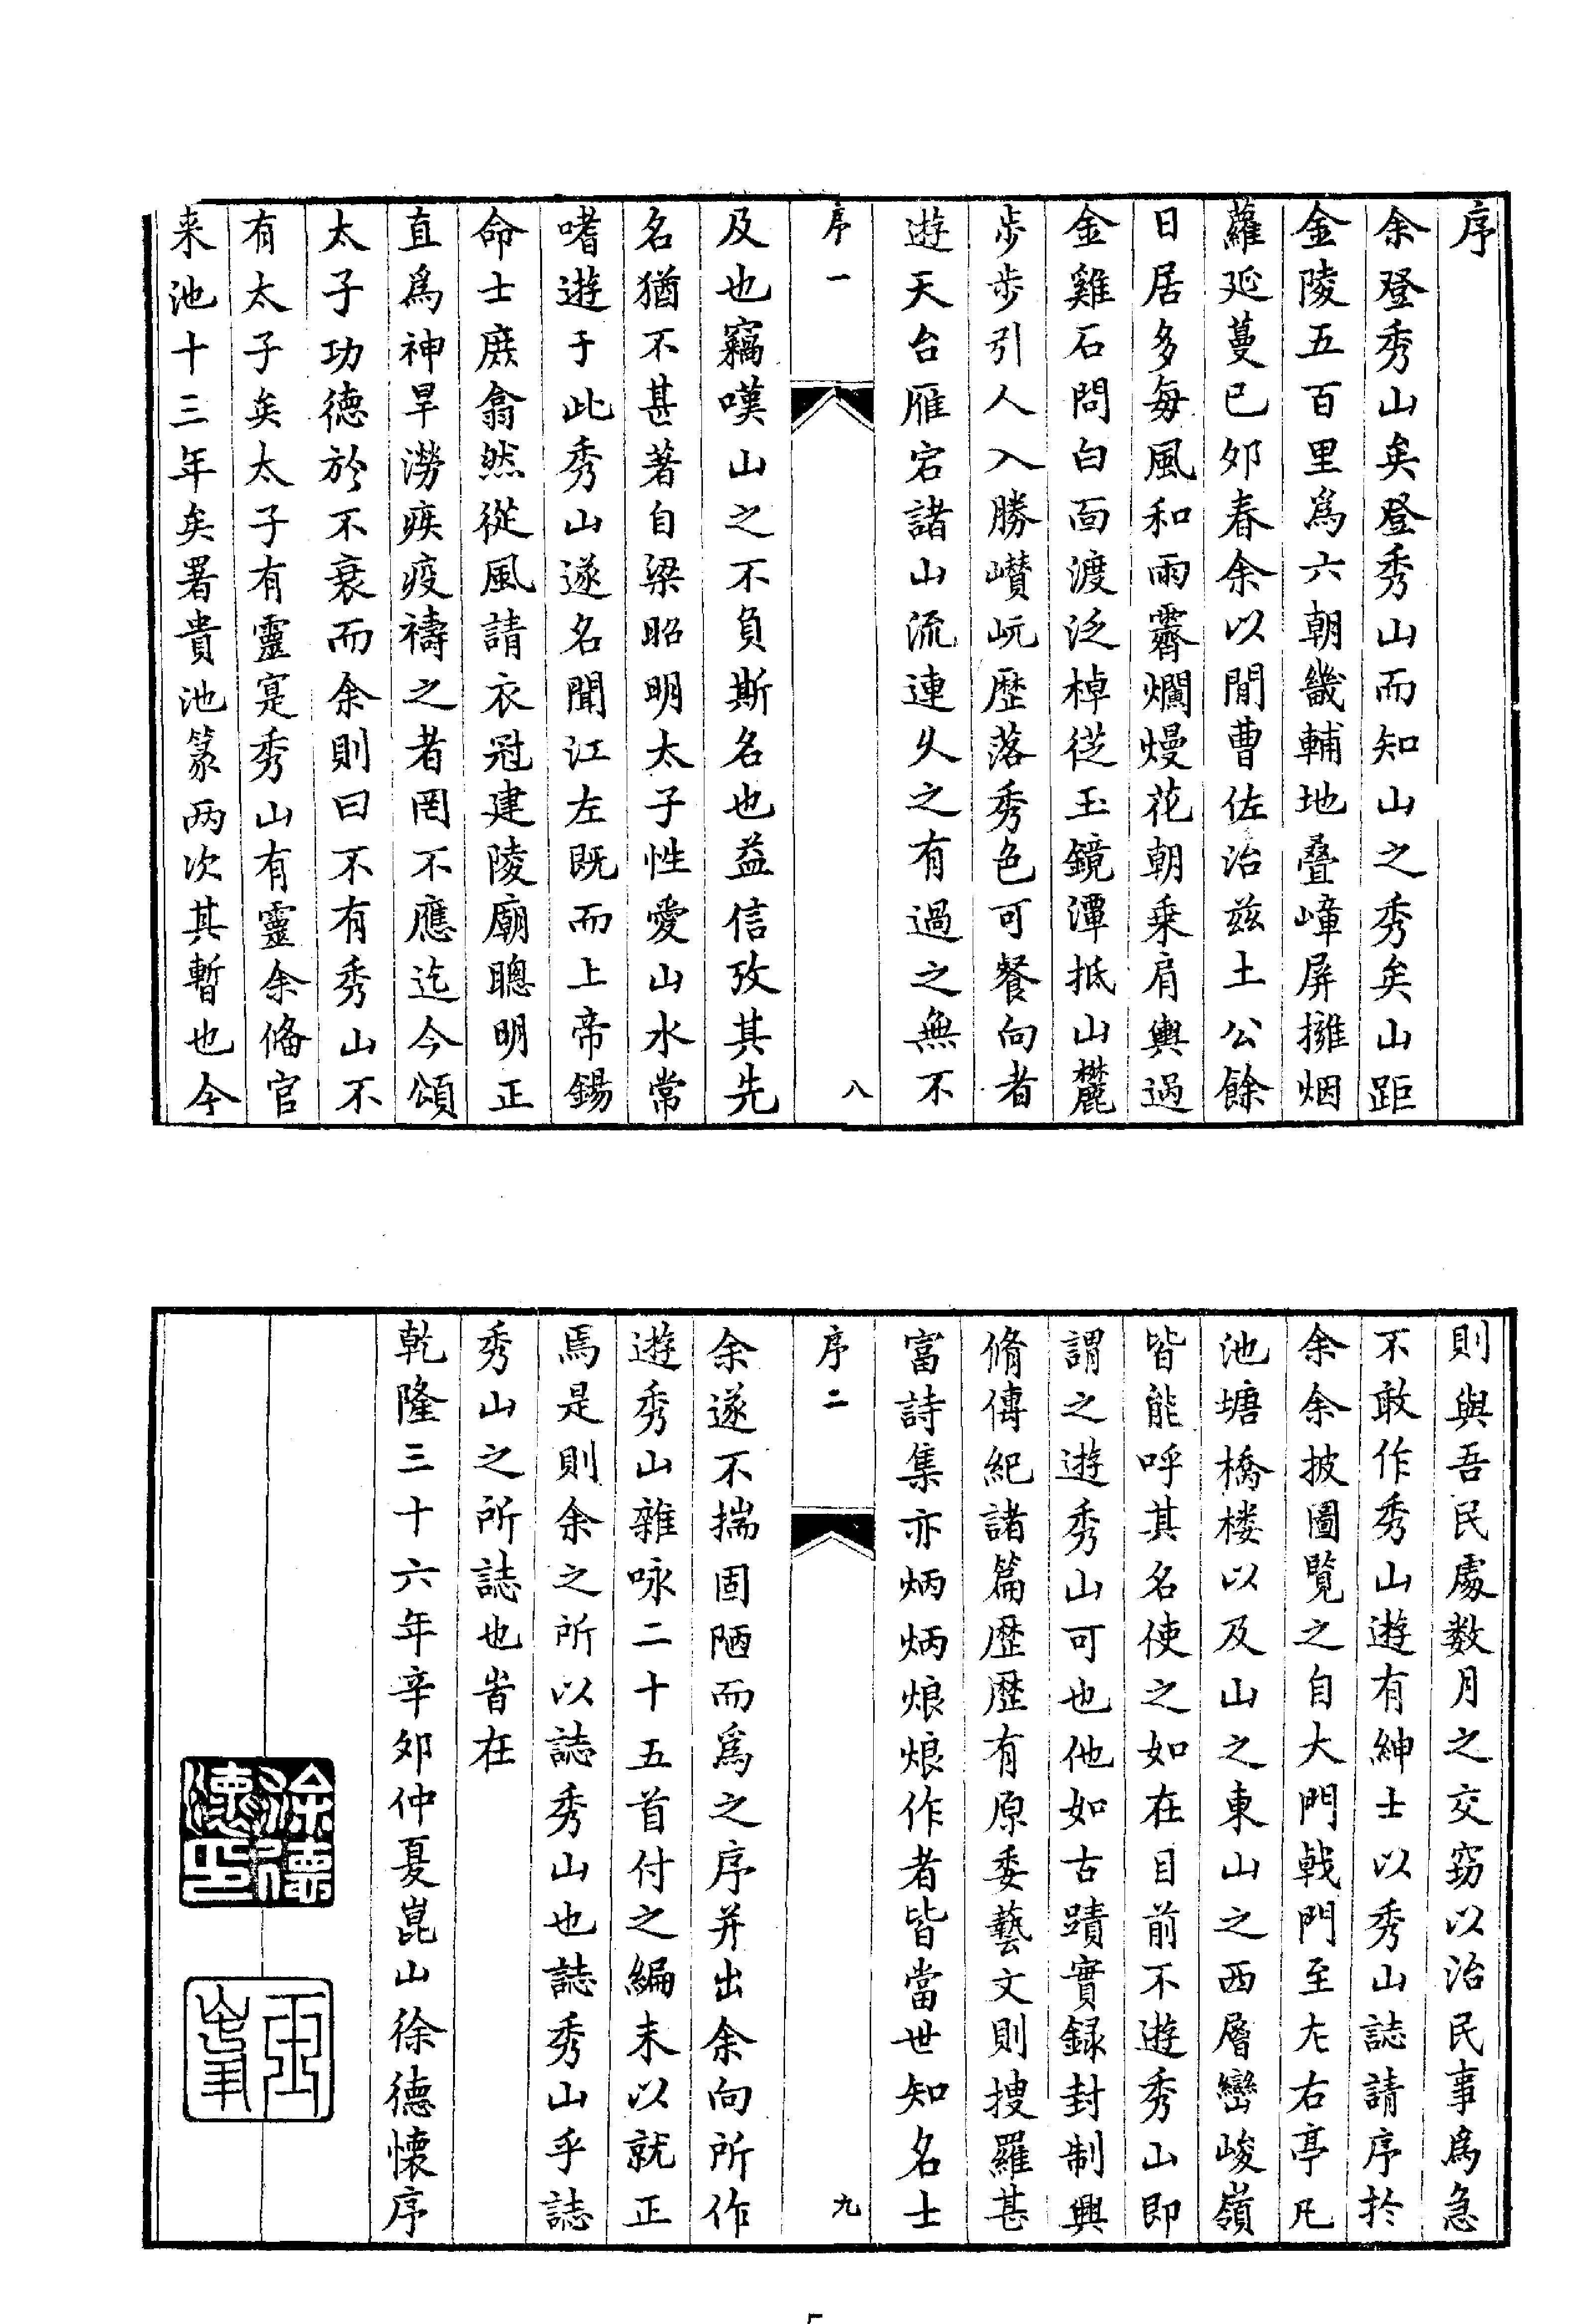 序
余登秀山矣登秀山而知山之秀矣山距
金陵五百里爲六朝畿輔地叠嶂屏擁烟
蘿延蔓已夘春余以閒曹佐治兹土公餘
日居多每風和雨霽爛熳花朝乗肩輿過
金雞石問白面渡泛棹從玉鏡潭抵山麓
歩歩引人入勝巑岏歴落秀色可餐向者
遊天台雁宕諸山流連久之有過之無不
序一
八
及也竊嘆山之不負斯名也益信攷其先
名猶不甚著自梁昭明太子性愛山水常
嗜遊于此秀山遂名聞江左既而上帝錫
命士庶翕然從風請衣冠建陵廟聰明正
直爲神旱澇疾疫禱之者罔不應迄今頌
太子功德於不衰而余則曰不有秀山不
有太子矣太子有靈寔秀山有靈余偹官
来池十三年矣署貴池篆两次其暫也今
則與吾民處数月之交窈以治民事爲急
不敢作秀山遊有紳士以秀山誌請序於
余余披圖覽之自大門戟門至左右亭凡
池塘橋楼以及山之東山之西層巒峻嶺
皆能呼其名使之如在目前不遊秀山即
謂之遊秀山可也他如古蹟實録封制興
脩傳紀諸篇歴歴有原委藝文則搜羅甚
富詩集亦炳炳烺烺作者皆當世知名士
序二
九
余遂不揣固陋而爲之序并出余向所作
遊秀山雜咏二十五首付之編末以就正
焉是則余之所以誌秀山也誌秀山乎誌
秀山之所誌也旹在
乾隆三十六年辛夘仲夏崑山徐德懷序
徐德
懷印
5